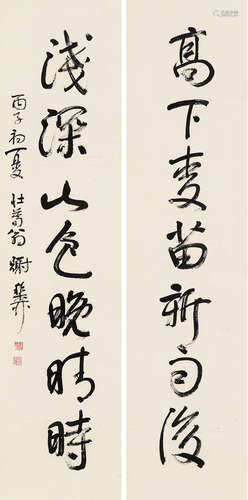 高下麦苗新雨后
浅深山色晚晴时
丙子初夏 壮暮翁 谢稚柳